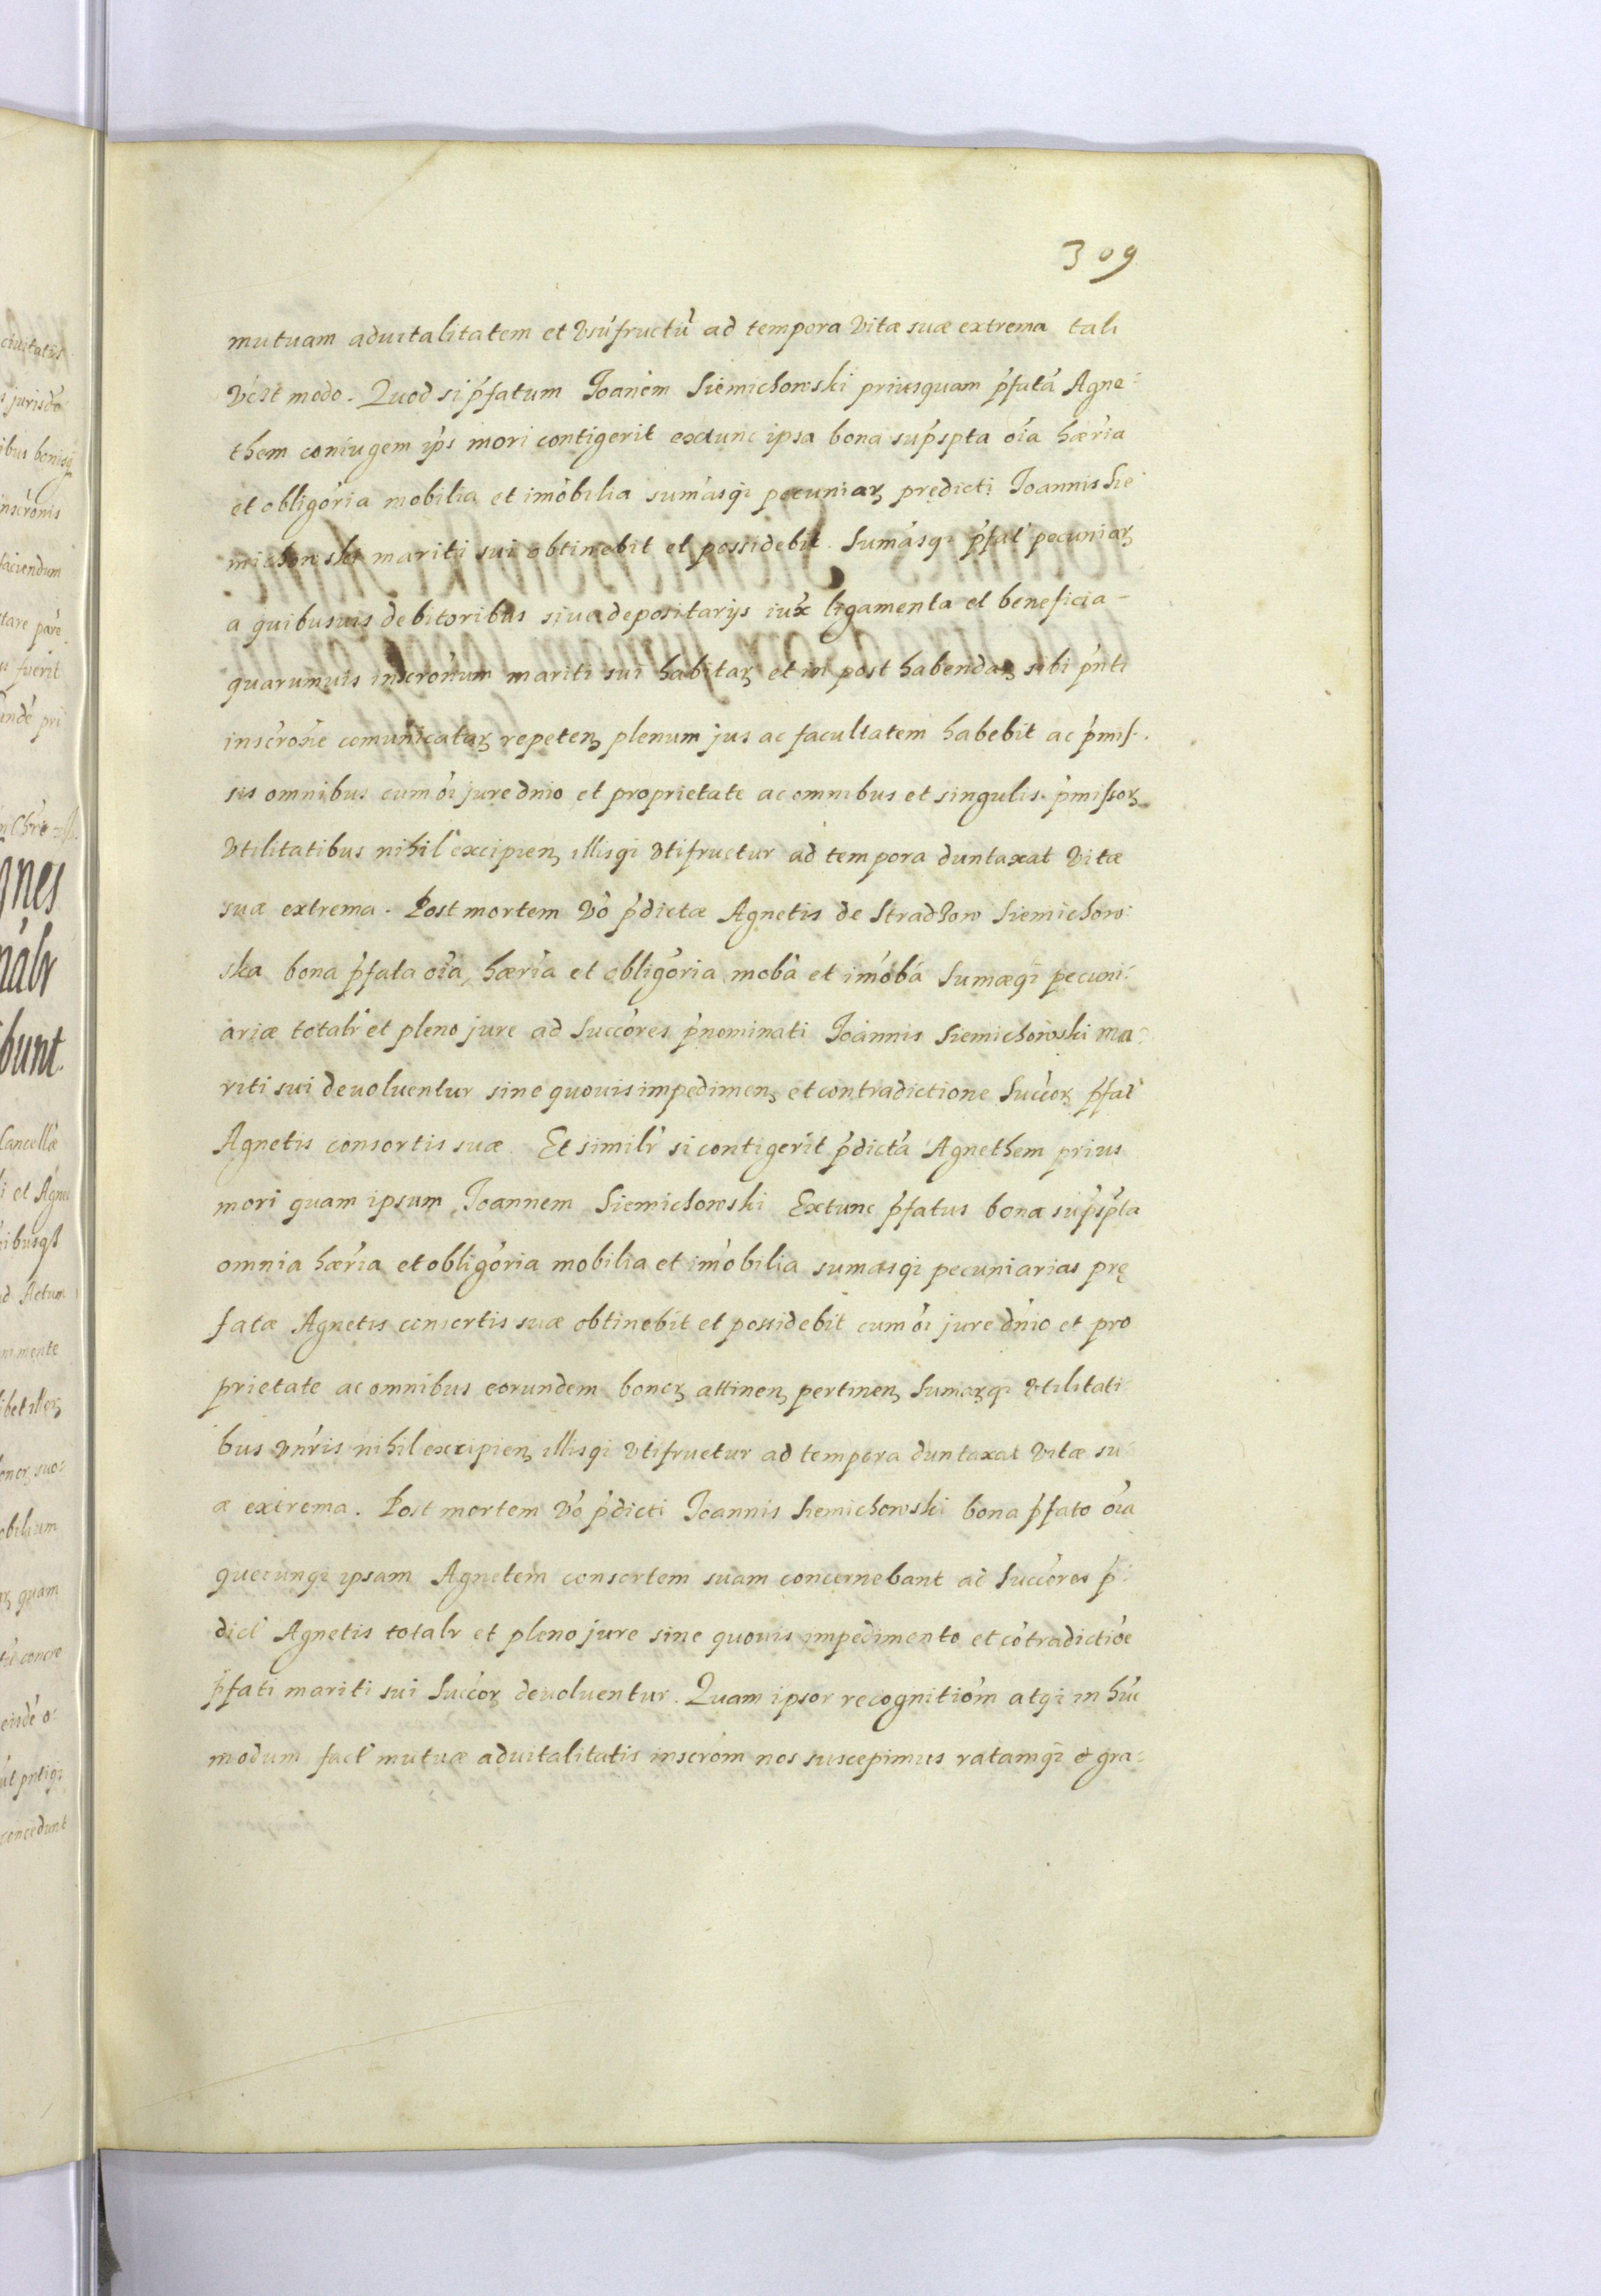 309
mutuam aduitalitatem et Vsúfructũ ad tempora Vitæ suæ extrema tali
Vcźt modo. Quod si ṕfatum Joaném Siemichowski priusquam ṕfatá Agne:
them coniugem ip̃s mori contigerit extunc ipsa bona suṕspta oı́a hæŕia
et obligória mobilia et imóbilia sumásq̃ pecuniaꝝ prędicti Joannis Sie
michowski mariti sui obtinebit et possidebit. Sumásq̃ ṕfať pecuniaꝝ
a quibusuis debitoribus siue depositarijs iux̃ ligamenta et beneficia –
quarumuis inscrónum mariti sui habitaꝝ et in post habendaꝝ sibi ṕnti
inscrónie comunicataꝝ repeteꝝ plenum jus ac facultatem habebit ac ṕmis:
sis omnibus cum oı́ jure dnio et proprietate ac omnibus et singulis ṕmissoꝝ
Vtilitatibus nihil excipieꝝ illisq̃ Vtifruetur ad tempora duntaxat Vitæ
suæ extrema. Post mortem Vó ṕdictæ Agnetis de Stradzow Siemichow:
ska bona ṕfata oı́a, hæŕia et obligória mobá et imóbá Sumæq̃ pecuni:
ariæ totalŕ et pleno jure ad Succóres ṕnominati Joánnis Siemichowski ma:
riti sui deuoluentur sine quouis impedimeꝝ et contradictione Succoꝝ ṕfať
Agnetis consortis suæ. Et similŕ si contigerit ṕdictá Agnethem prius
mori quam ipsum Joannem Siemichowski Extunc ṕfatus bona suṕspta
omnia hæŕia et obligória mobilia et imóbilia sumasq̃ pecuniarias prę
fatæ Agnetis consortis suæ obtinebit et possidebit cum oı́ jure dńio et pro
prietate ac omnibus eorundem bonoꝝ attineꝝ pertineꝝ Sumaꝝq̃ Vtilitati:
bus Vnŕis nihil excipieꝝ illisq̃ Vtifruetur ad tempora duntaxat Vitæ su:
æ extrema. Post mortem Vó ṕdicti Joannis Siemichowski bona ṕfato oı́a
quecunq̃ ipsam Agnetem consortem suam concernebant ad Succóres ṕ:
dicť Agnetis totalr et pleno jure sine quouis impedimento et cótradictióe
ṕfati mariti sui Succoꝝ deuoluentur. Quam ipsor recognitióm atq̃ in húc
modum facť mutuæ aduitalitatis inscróm nos suscepimus ratamq̃ & gra: